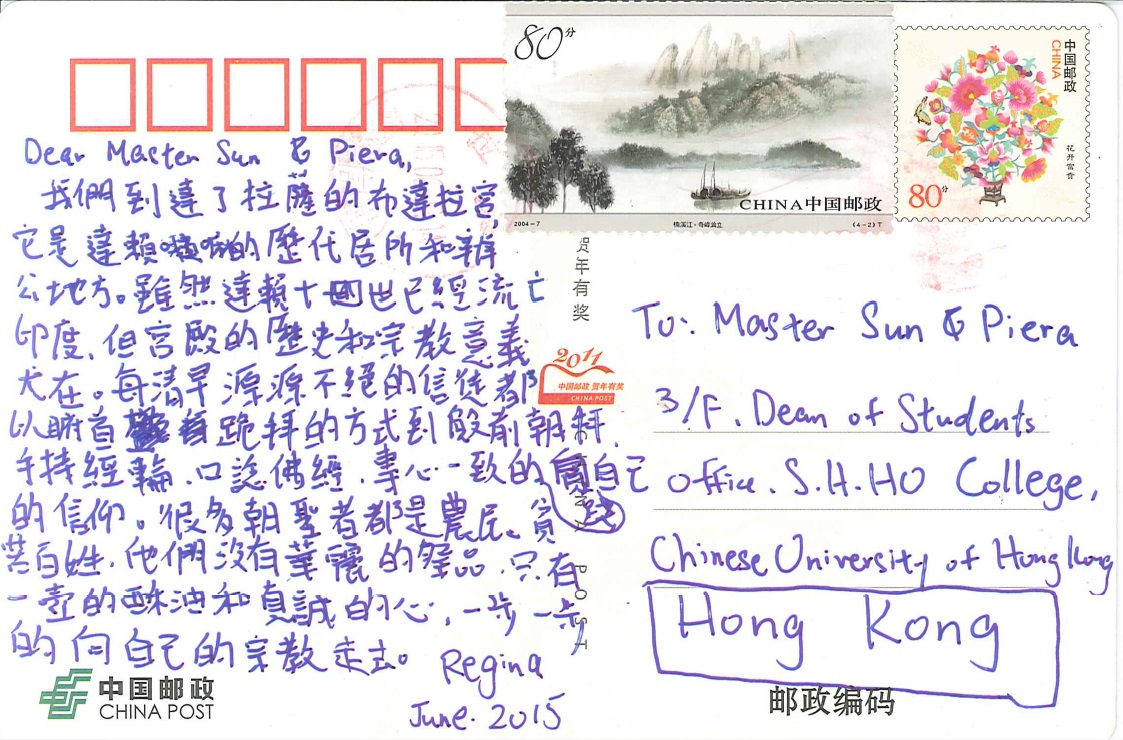 80分
CHINA中国邮政
2004-7
(4-2)T
中国邮政
CHINA
花开富贵
80分
Dear Master Sun & Piera,
我們到達了拉薩的布達拉宮,
它是達賴喇嘛的歷代居所和辦
公地方。雖然達賴十四世已經流亡
印度、但宮殿的歷史和宗教意義
犬在。每清早源源不絕的信徒都
以 首 跪拜的方式到殿前朝拜.
手持經輪、口 佛經、專心一致的 自己
踐
的信仰。很多朝聖者都是農民、貧
苦百姓,他們沒有華麗的祭品,只有
一壺的酥油和真誠的心,一步一步
的向自己的宗教走去。
Regina
June. 2015
贺年有奖
2011
中国邮政 贺年有奖
CHINA POST
CHINA POST
To: Master Sun & Piera
3/F. Dean of Students
office. S.H.HO College,
Chinese University of Hong Kong
Hong Kong
邮政编码
中国邮政
CHINA POST